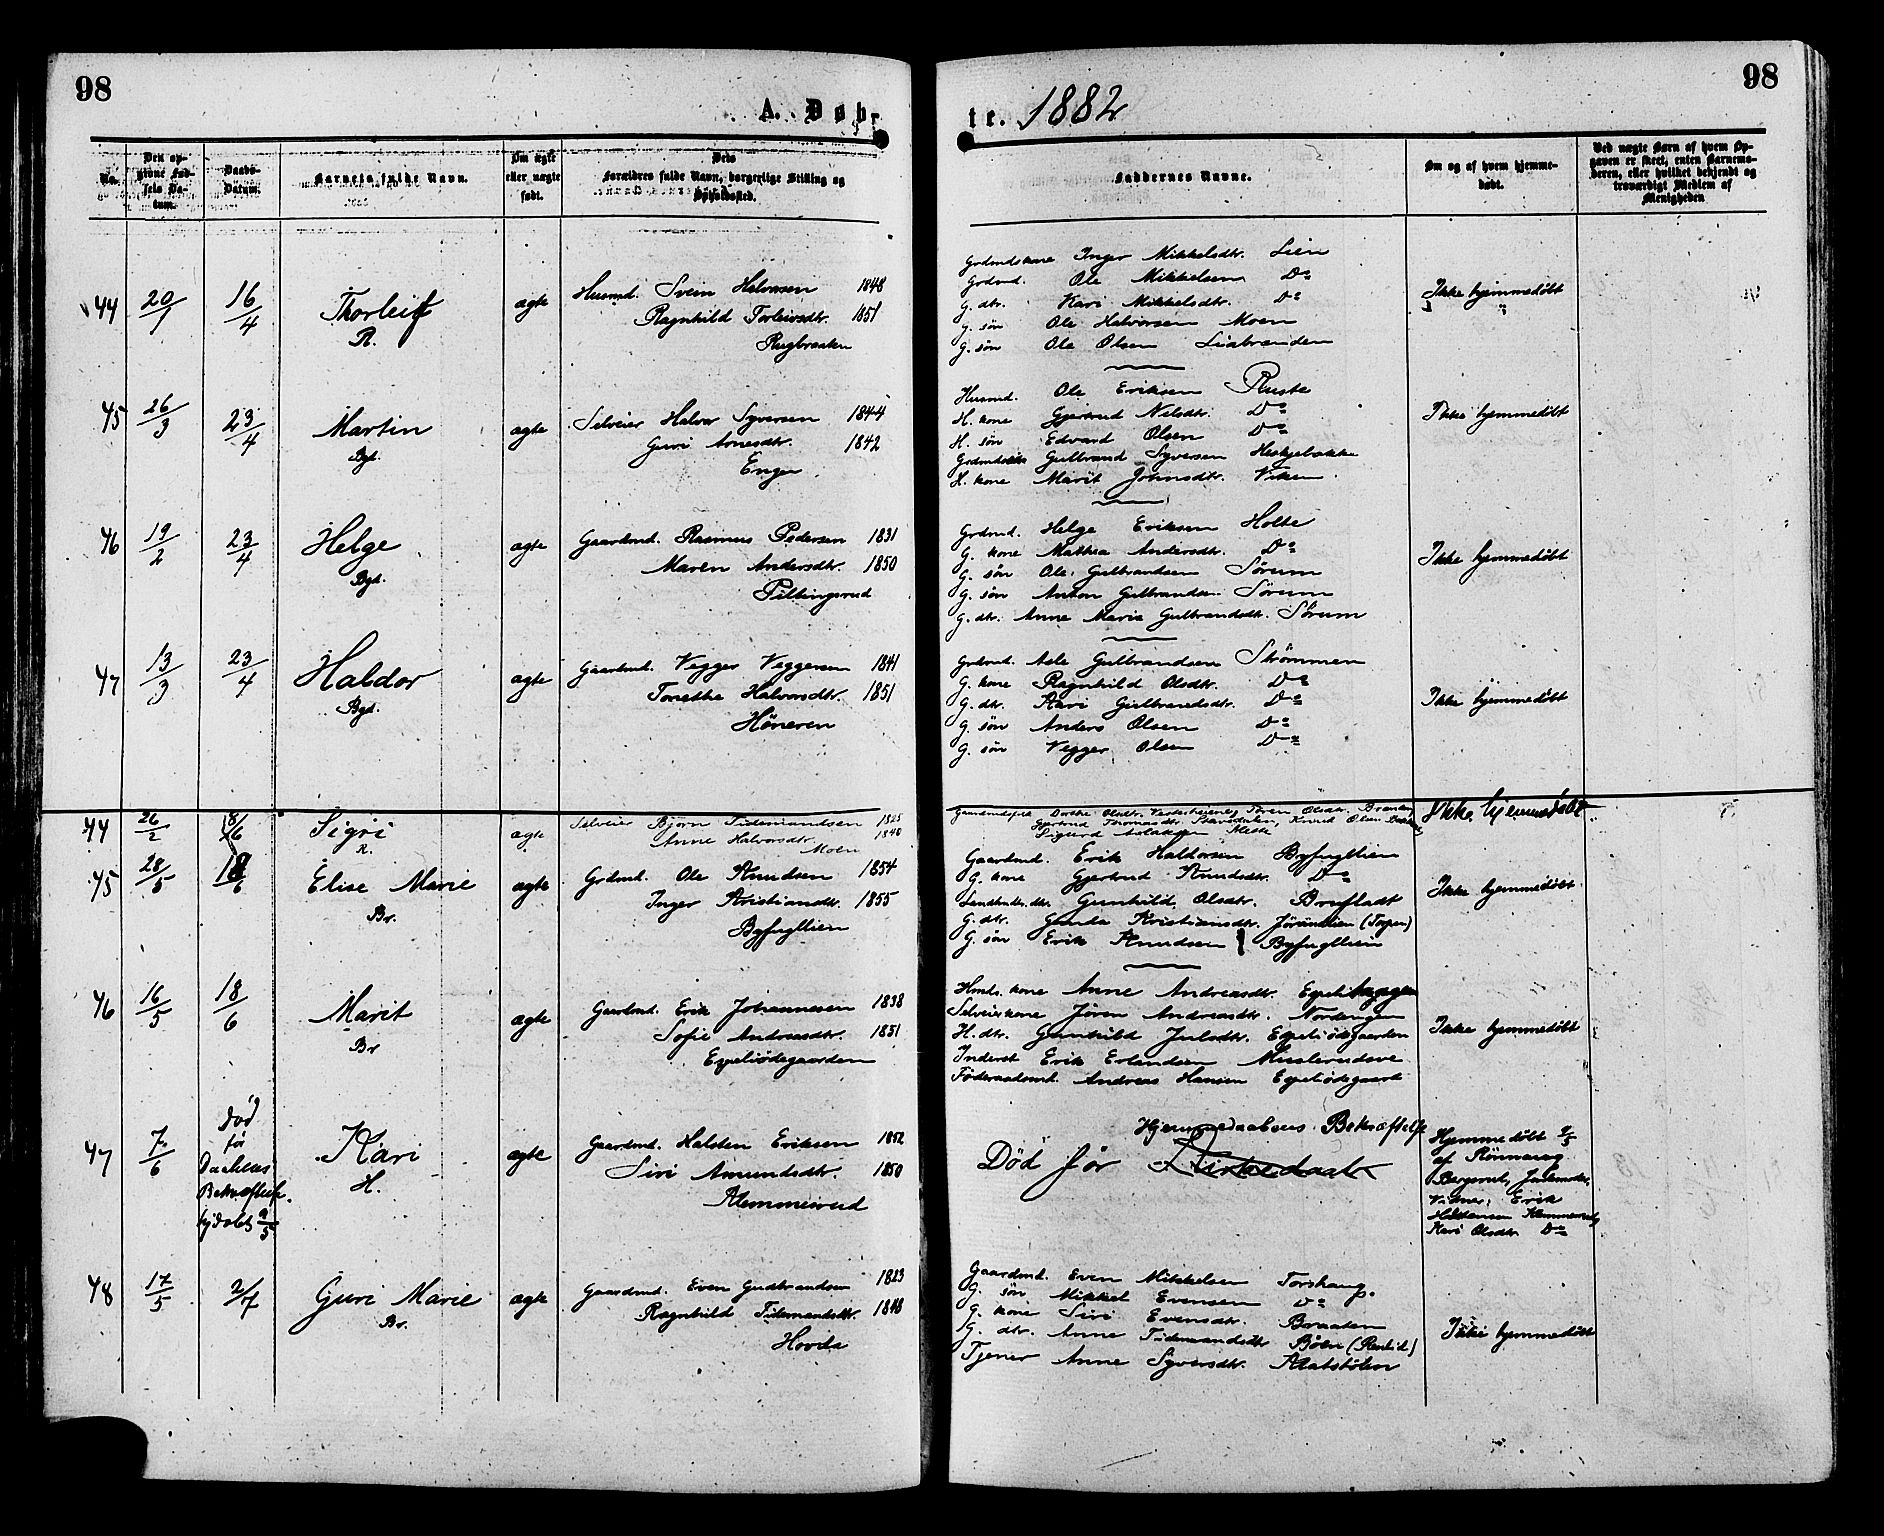 98
98
A. Døb-
te. 1882
No.
Den op-
givne Fød-
sels Da-
tum.
Daabs-
Datum.
Barnets fulde Navn.
Om ægte
eller uægte
født.
Dets
Forældres fulde Navn, borgerlige Stilling og
Opholdssted.
Faddernes Navne.
Om og af hvem hjemme-
døbt.
Ved uægte Børn af hvem Op-
gaven er skeet, enten Barnemo-
deren, eller hvilket bekjendt og
troværdigt Medlem af
Menigheden
44 20/1 16/4 Thorleif ægte Husmd. Svein Halvorsen 1848
R. Ragnhild Torleivsdtr. 1851
Rugbraaten
Grdmdskone Inger Mikkelsdtr. Lien
Grdmd. Ole Mikkelsen Do
G. dtr. Kari Mikkelsdtr. Do
G. søn Ole Halvorsen Moen
G. søn Ole Olsen Liabraaden
Ikke hjemmedøbt
45 26/3 23/4 Martin ægte Selveier Halvor Syversen 1844
Bgd. Guri Arnesdtr. 1842
Enger
Husmd. Ole Eriksen Ruste
H. kone Gjertrud Nilsdtr. Do
H. søn Edvard Olsen Do
Gulbrand Syversen
H. kone Marit Johnsdtr. Viken
Ikke hjemmedøbt
46 19/2 23/4 Helge ægte Gaardmd. Rasmus Pedersen 1831
Bgd. Maren Andersdtr. 1850
Piltingsrud
Grdmd. Helge Eriksen Holte
G. kone Mathea Andersdtr. Do
G. søn Ole Gulbrandsen Sørum
G. søn Anton Gulbrandsen Sørum
G. dtr. Anne Marie Gulbrandsdtr. Sørum
Ikke hjemmedøbt
47 13/3 23/4 Haldor ægte Gaardmd. Vegger Veggersen 1841
Bgd. Torethe Halvorsdtr. 1851
Høneren
Grdmd. Asle Gulbrandsen Strømmen
G. kone Ragnhild Olsdtr. Do
G. dtr. Kari Gulbrandsdtr. Do
G. søn Anders Olsen Do
G. søn Vegger Olsen Do
Ikke hjemmedøbt
44 26/2 18/6 Sigri ægte Selveier Bjørn Tidemandsen 1825
R. Anne Halvorsdtr. 1840
Moen
Dorthe Olsdtr. Jøren Olsdtr. Braaten
Gjertrud Thomasdtr. Knud Olsen
Sigurd Aslaksen
Ikke hjemmedøbt
45 28/5 18/6 Elise Marie ægte Grdmd. Ole Knudsen 1854
Br. Inger Kristiandtr. 1855
Byfugllien
Gaardmd. Erik Haldorsen Byfugllien
G. kone Gjertrud Knudsdtr. Do
Gunhild Olsdtr. Brufladt
G. dtr. Gunda Kristiansdtr.
G. søn Erik Knudsen Byfugllien
Ikke hjemmedøbt
46 16/5 18/6 Marit ægte Gaardmd. Erik Johannesen 1838
Br Sofie Andreasdtr. 1851
Espeliødegaarden
Hmds. kone Anne Andreasdtr. Espelihaugen
Selveierkone Jøren Andreasdtr. Nordengen
H. dtr. Gunhild Julsdtr. Espeliødegaarden
Inderst Erik Erlandsen
Føderaadsmd. Andreas Hansen Espeliødegaard
Ikke hjemmedøbt
47 7/6 død før Daabens Bekræftelse. hjdøbt 9/5 Kari ægte Gaardmd. Halsten Eriksen 1852
H. Siri Amundsdtr. 1850
Klemmesrud
Hjemmedaabens Bekræftelse
Død før Kirkedaab
Hjemmedøbt 9/5
af Rønnaug
Bergsrud, Jordmoder,
Erik
Halstensen Klemmesrud,
Kari Olsdtr. Do
48 17/5 2/7 Guri Marie ægte Gaardmd. Even Gudbrandsen 1823
Br. Ragnhild Tidemandsdtr. 1848
Hovda
Gaardmd. Even Mikkelsen Torshaug.
G. søn Mikkel Evensen Do
G. kone Siri Evensdtr. Braaten
G. dtr. Anne Tidemandsdtr. Bøen
Tjener Anne Syversdtr. Klatstølen
Ikke hjemmedøbt